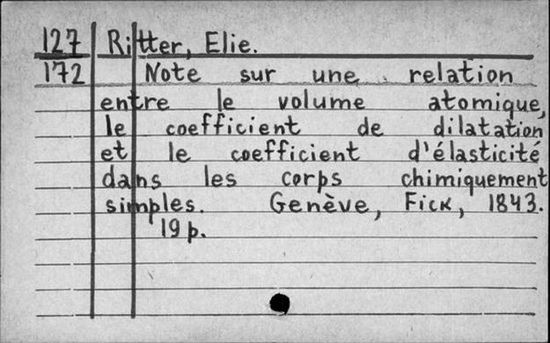 127 Ritter, Elie.
172 Note sur une relation
entre le volume atomique,
le coefficient de dilatation
et le coefficient d'élasticité
dans les corps chimiquement
simples. Genève, Fick, 1843.
19 p.